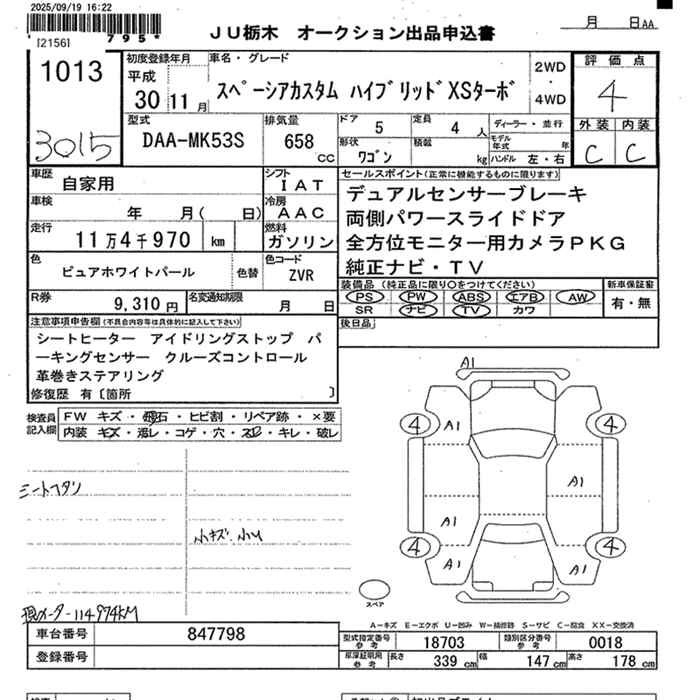 2025/09/19 16:22
[2156]
795*
JU栃木 オークション出品申込書
月 日AA
1013
3015
初度登録年月
平成
30 11 月
車名・グレード
スペーシアカスタム ハイブリッドXSターボ
2WD
・
4WD
評価点
4
外装 内装
C C
型式
DAA-MK53S
排気量
658
CC
ドア
5
定員
4 人
ディーラー・並行
形状
ワゴン
積載
kg
モデル年式 年
ハンドル 左・右
車歴
自家用
シフト
IAT
車検
年 月( 日)
冷房
AAC
走行
11万4千970 km
燃料
ガソリン
色
ピュアホワイトパール
色替
色コード
ZVR
R券
9,310 円
名変通知期限
月 日
セールスポイント(正常に機能するものに限ります)
デュアルセンサーブレーキ
両側パワースライドドア
全方位モニター用カメラPKG
純正ナビ・TV
装備品 (純正品に限り○をつけてください)
PS PW ABS エアB AW
SR ナビ TV カワ
新車保証書
有・無
後日品
注意事項申告欄(不具合内容等は具体的に記入して下さい)
シートヒーター アイドリングストップ パ
ーキングセンサー クルーズコントロール
革巻きステアリング
修復歴 有〔箇所 〕
検査員
記入欄
FW キズ・飛石・ヒビ割・リペア跡・×要
内装 キズ・汚レ・コゲ・穴・スレ・キレ・破レ
シートヘタリ
小キズ.小凹
現メーター114974KM
A1
4 A1 4
A1
A1
4 A1 A1 4
スペア
A-キズ E-エクボ U-凹み W-補修跡 S-サビ C-腐食 XX-交換済
車台番号
847798
登録番号
型式指定番号
参考
18703
類別区分番号
参考
0018
車庫証明用
参考
長さ
339 cm
幅
147 cm
高さ
178 cm